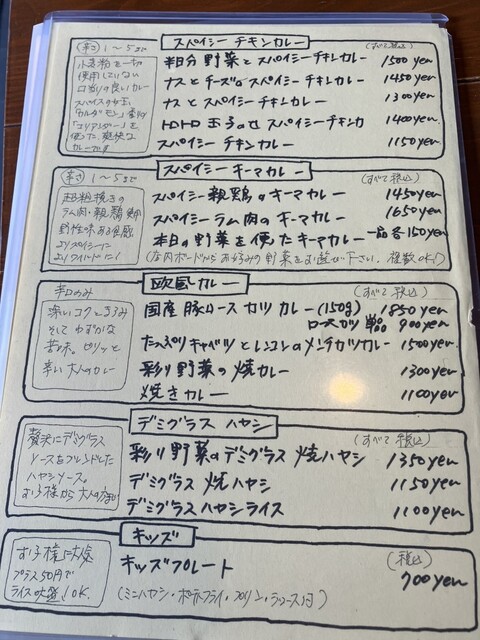 スパイシー チキンカレー
(すべて税込)
辛さ 1〜5まで
小麦粉を一切
使用していない
口当りの良いカレー
スパイスの女王
「カルダモン」
「コリアンダー」を
使った爽快な
カレーです
半日分野菜とスパイシーチキンカレー 1500yen
ナスとチーズのスパイシーチキンカレー 1450yen
ナスとスパイシーチキンカレー 1300yen
トロトロ玉子のせスパイシーチキンカ 1400yen
スパイシー チキンカレー 1150yen
スパイシー キーマカレー
(すべて税込)
辛さ 1〜5まで
超粗挽きの
ラム肉・親鶏
野性味ある食感
よりスパイシーに
よりワイルドに!
スパイシー親鶏のキーマカレー 1450yen
スパイシーラム肉のキーマカレー 1650yen
本日の野菜を使ったキーマカレー 一品各150yen
(店内ボードからお好みの野菜をお選び下さい。複数OK!)
欧風カレー
(すべて税込)
辛口のみ
深いコクと甘み
そしてわずかな
苦味。ピリッと
辛い大人のカレー
国産豚ロースカツカレー(150g) 1850yen
ロースカツ単品 900yen
たっぷりキャベツとレンコンのメンチカツカレー 1500yen
彩り野菜の焼カレー 1300yen
焼きカレー 1100yen
デミグラス ハヤシ
(すべて税込)
贅沢にデミグラス
ソースをブレンドした
ハヤシソース。
お子様から大人の方まで
彩り野菜のデミグラス焼ハヤシ 1350yen
デミグラス焼ハヤシ 1150yen
デミグラスハヤシライス 1100yen
キッズ
(税込)
お子様に大人気
プラス50円で
ライスの大盛りOK.
キッズプレート 700yen
(ミニハヤシ・ポテトフライ・プリン・ジュース付)